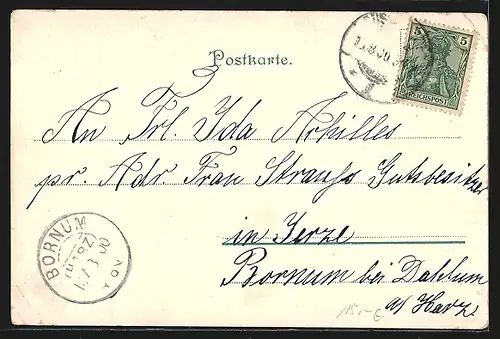 Postkarte.
5 5
REICHSPOST
An Frl. Ida Achilles
pr. Adr. Frau Strauß Gutsbesitzer
in Jerze
Bornum bei Dahlum
a/ Harz
BORNUM
(HARZ)